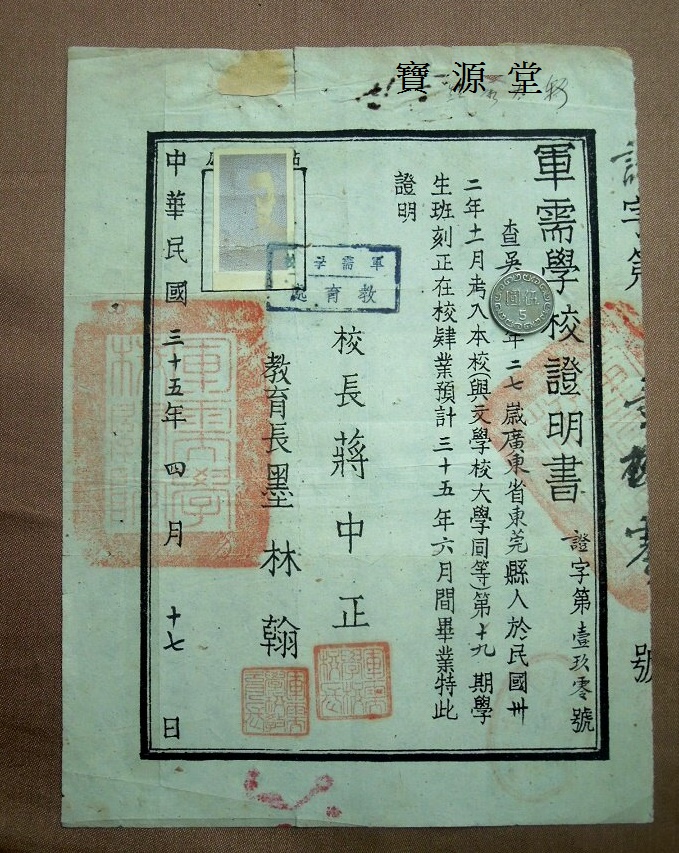 寶源堂
軍需學校證明書
證字第壹玖零號
查吳 年二七歲廣東省東莞縣人於民國卅
二年十一月考入本校(與文學校大學同等)第十九期學
生班刻正在校肄業預計三十五年六月間畢業特此
證明
校長蔣中正
教育長墨林翰
軍需學校
教育處
中華民國三十五年四月十七日
伍圓
5
字第
號